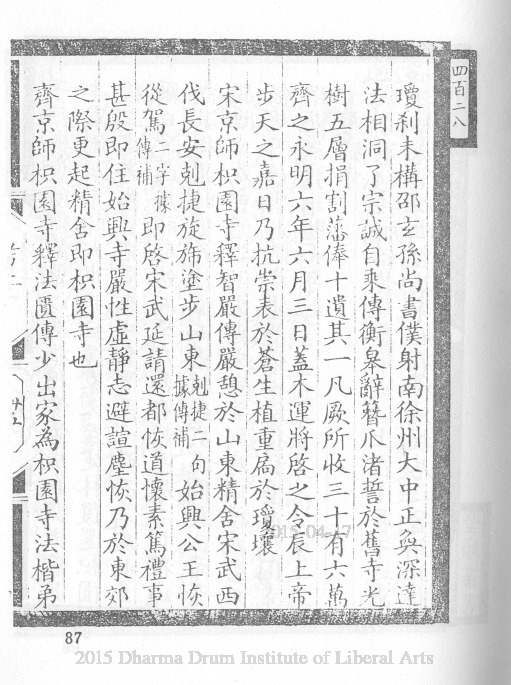 四百二八
瓊刹未構邵玄孫尚書僕射南徐州大中正奐深達
法相洞了宗誠自乘傳衡皋辭簪爪渚誓於舊寺光
樹五層捐割藩俸十遺其一凡厥所收三十有六萬
齊之永明六年六月三日蓋木運將啓之令辰上帝
步天之嘉日乃抗崇表於蒼生植重扃於瓊壤
宋京師枳園寺釋智嚴傳嚴憩於山東精舍宋武西
伐長安剋捷旋旆塗步山東剋捷二句據傳補始興公王恢
從駕二字據傳補即啓宋武延請還都恢道懷素篤禮事
甚殷即住始興寺嚴性虛靜志避諠塵恢乃於東郊
之際更起精舍即枳園寺也
齊京師枳園寺釋法匱傳少出家為枳園寺法楷弟
87
2015-04-17
2015 Dharma Drum Institute of Liberal Arts